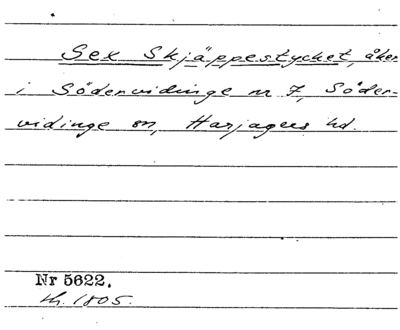 Sex Skjäppestycket, åker
i Södervidinge nr 7, Söder-
vidinge sn, Harjagers hd.
Nr 5622.
th. 1805.